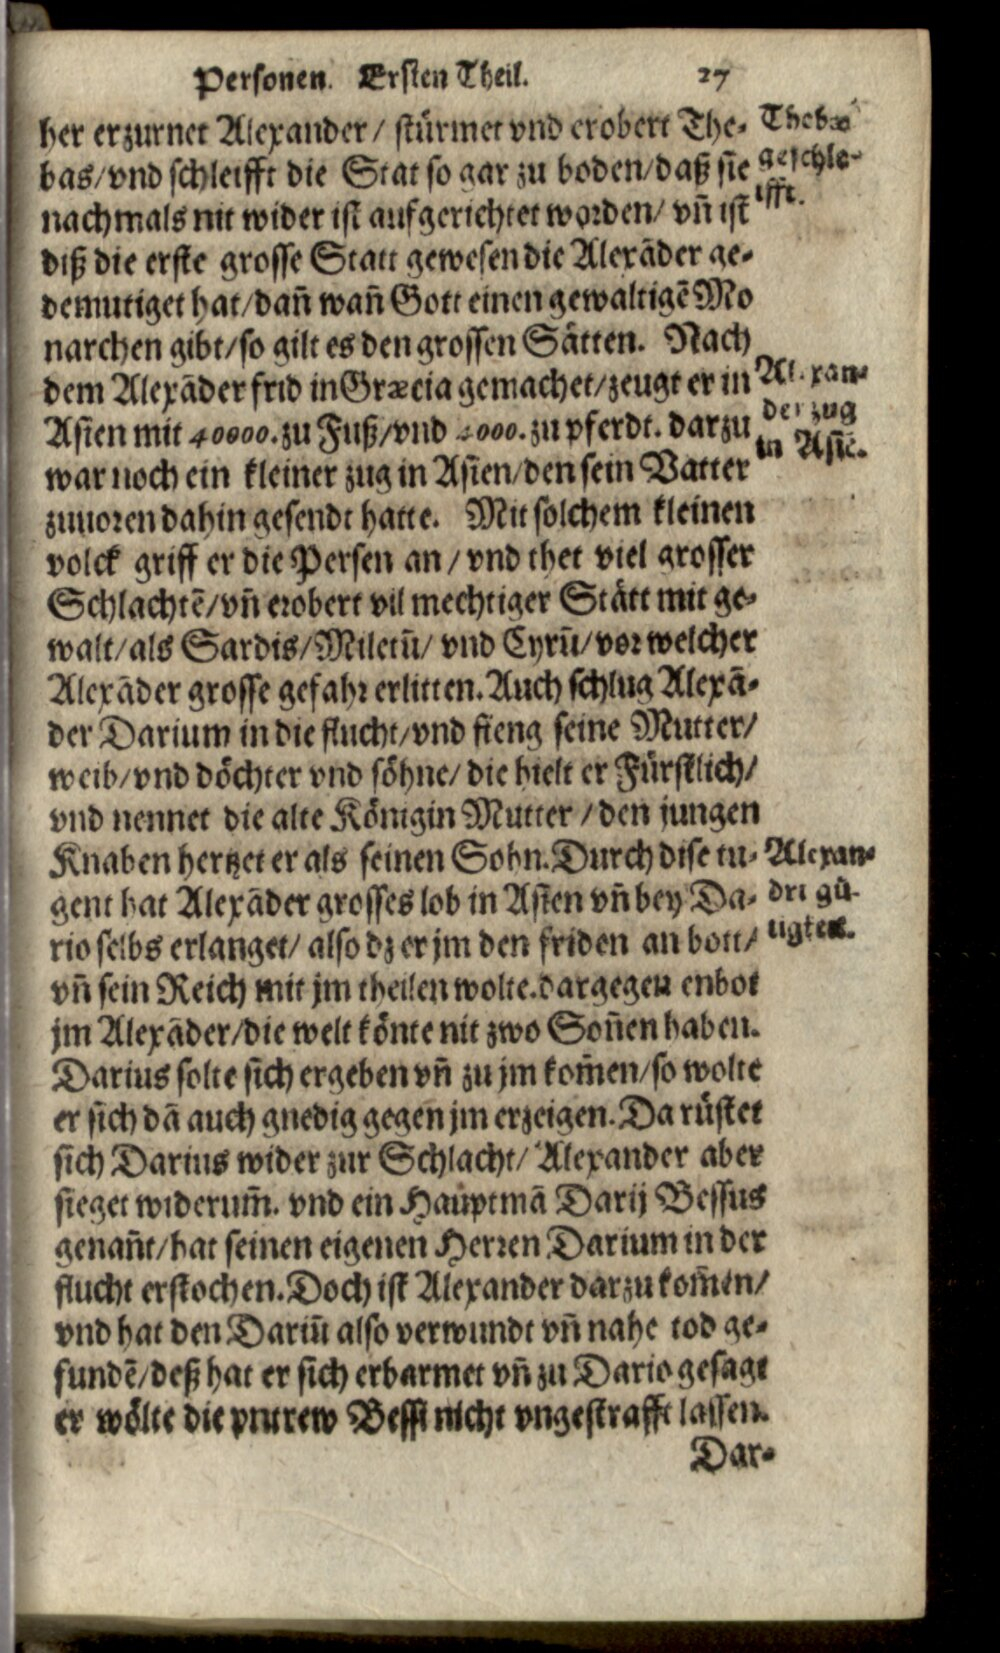 Personen. Ersten Theil. 27
her erzurnet Alexander / stürmet vnd erobert The-
bas/vnd schleifft die Stat so gar zu boden/daß sie
nachmals nit wider ist aufgerichtet worden/ vñ ist
diß die erste grosse Statt gewesen die Alexãder ge-
demutiget hat/dañ wañ Gott einen gewaltigẽ Mo
narchen gibt/so gilt es den grossen Sätten. Nach
dem Alexãder frid in Græcia gemachet/zeugt er in
Asien mit 40000. zu Fuß/vnd 4000. zu pferdt. darzu
war noch ein kleiner zug in Asien/den sein Vatter
zuuoren dahin gesendt hatte. Mit solchem kleinen
volck griff er die Persen an / vnd thet viel grosser
Schlachtẽ/vñ erobert vil mechtiger Stätt mit ge-
walt/als Sardis/Miletũ/ vnd Cyrũ/vor welcher
Alexãder grosse gefahr erlitten. Auch schlug Alexã-
der Darium in die flucht/vnd fieng seine Mutter/
weib/vnd döchter vnd söhne/ die hielt er Fürstlich/
vnd nennet die alte Königin Mutter / den jungen
Knaben hertzet er als seinen Sohn. Durch dise tu-
gent hat Alexãder grosses lob in Asien vñ bey Da-
rio selbs erlanget/ also dz er jm den friden an bott/
vñ sein Reich mit jm theilen wolte. dargegen enbot
jm Alexãder/die welt könte nit zwo Soñen haben.
Darius solte sich ergeben vñ zu jm kom̃en/so wolte
er sich dã auch gnedig gegen jm erzeigen. Da rüstet
sich Darius wider zur Schlacht/ Alexander aber
sieget widerum̃. vnd ein Hauptmã Darij Bessus
genañt/hat seinen eigenen Herren Darium in der
flucht erstochen. Doch ist Alexander darzu kom̃en/
vnd hat den Dariũ also verwundt vñ nahe tod ge-
fundẽ/deß hat er sich erbarmet vñ zu Dario gesagt
er wölte die vntrew Bessi nicht vngestrafft lassen.
Dar-
Thebæ
geschle-
ifft.
Alexan-
der zug
in Asiẽ.
Alexan-
dri gü-
tigkeit.